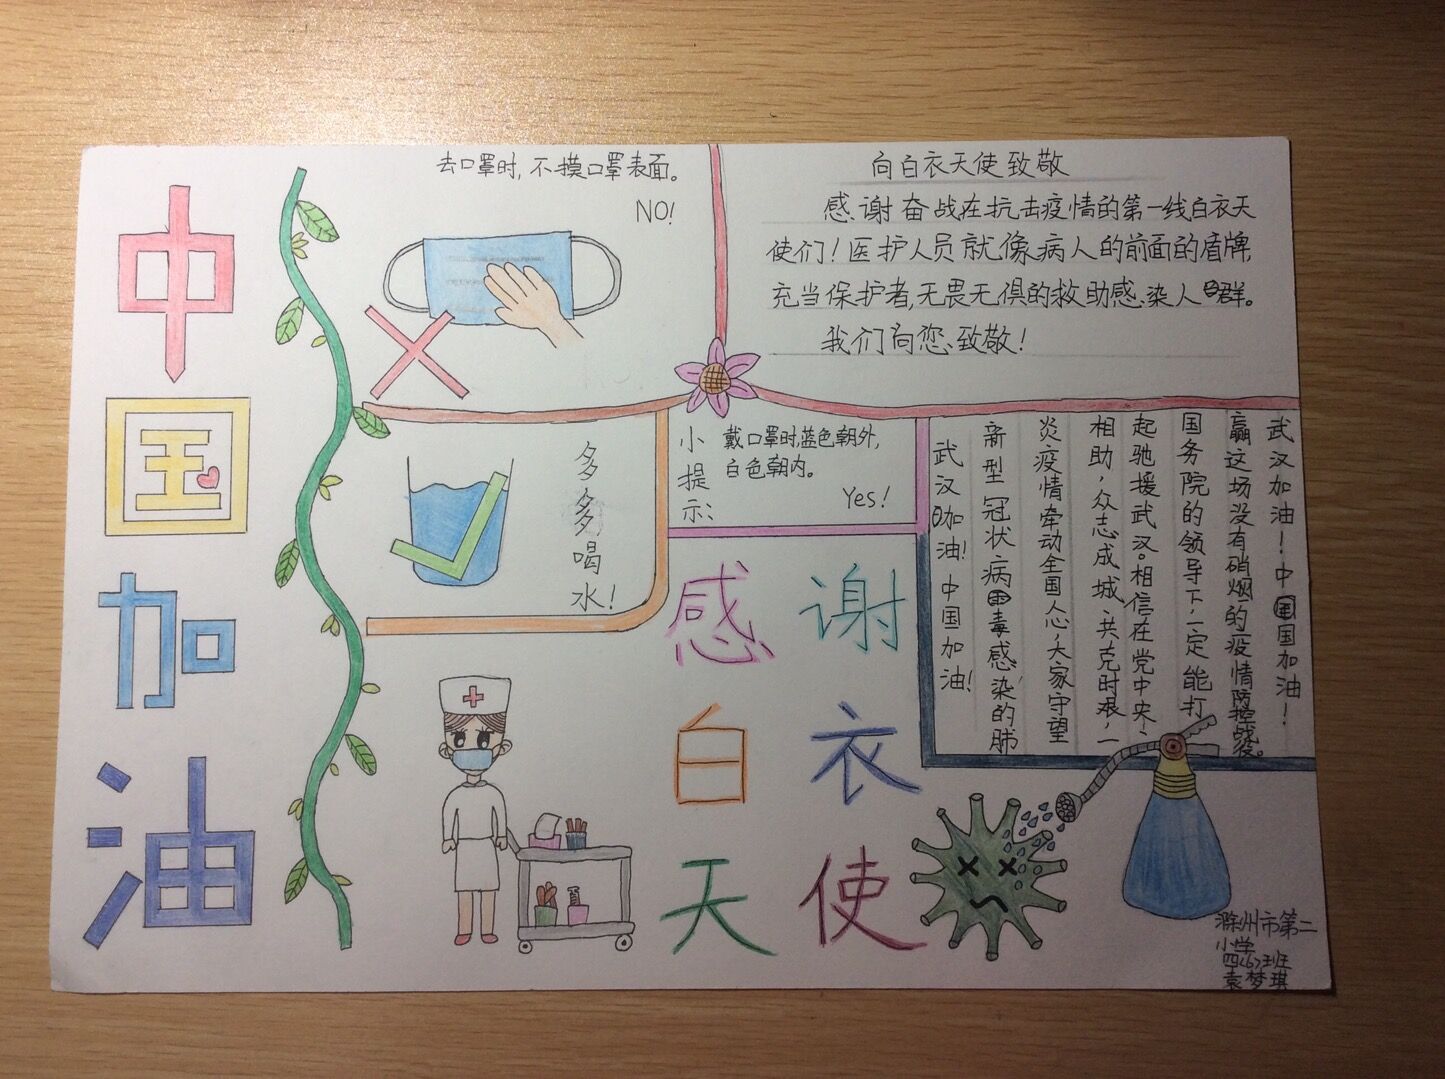 中国加油
去口罩时,不摸口罩表面。
NO!
向白衣天使致敬
感谢奋战在抗击疫情的第一线白衣天
使们!医护人员就像病人的前面的盾牌,
充当保护者,无畏无惧的救助感染人群。
我们向您致敬!
多多喝水!
小提示:
戴口罩时,蓝色朝外,
白色朝内。
Yes!
武汉加油!中国加油!
新型冠状病毒感染的肺
炎疫情牵动全国人心,大家守望
相助,众志成城,共克时艰,一
起驰援武汉。相信在党中央、
国务院的领导下,一定能打
赢这场没有硝烟的疫情防控战役。
武汉加油!中国加油!
感谢
白衣
天使
滁州市第二
小学
四(6)班
袁梦琪